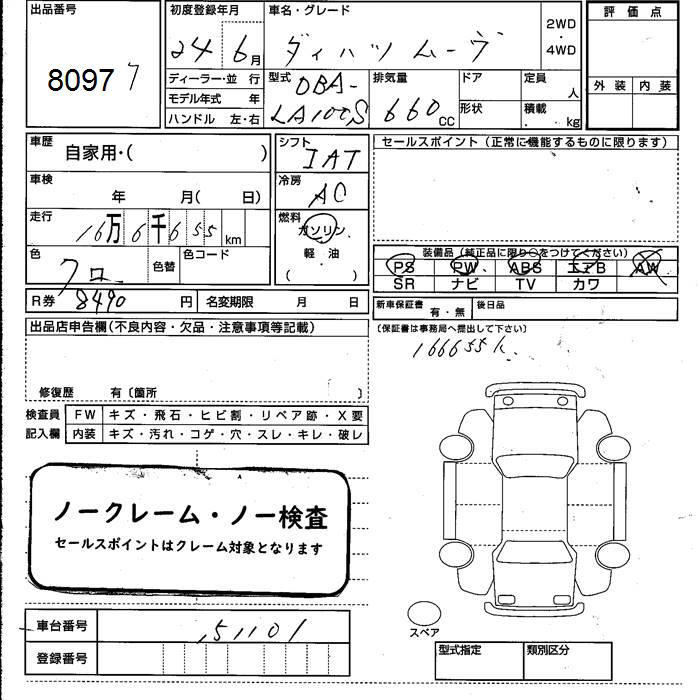 出品番号
80977
初度登録年月
24年6月
車名・グレード
ダイハツムーヴ
2WD
・
4WD
評価点
外装 内装
ディーラー・並行
モデル年式 年
ハンドル 左・右
型式
DBA-
LA100S
排気量
660cc
ドア
形状
定員
人
積載
. kg
車歴
自家用・( )
車検
年 月( 日)
走行
16万6千655km
色
クロ
色替
色コード
R券 8490円
名変期限 月 日
シフト
IAT
冷房
AC
燃料
ガソリン.
軽・油
( )
セールスポイント(正常に機能するものに限ります)
装備品(純正品に限り○をつけてください)
PS PW. ABS エアB AW
SR ナビ TV カワ
新車保証書 有・無
後日品
(保証書は事務局へ提出して下さい)
166655k
出品店申告欄(不良内容・欠品・注意事項等記載)
修復歴 有〔箇所 〕
検査員 FW キズ・飛石・ヒビ割・リペア跡・X要
記入欄 内装 キズ・汚れ・コゲ・穴・スレ・キレ・破レ
ノークレーム・ノー検査
セールスポイントはクレーム対象となります
車台番号
51101
登録番号
スペア
型式指定
類別区分